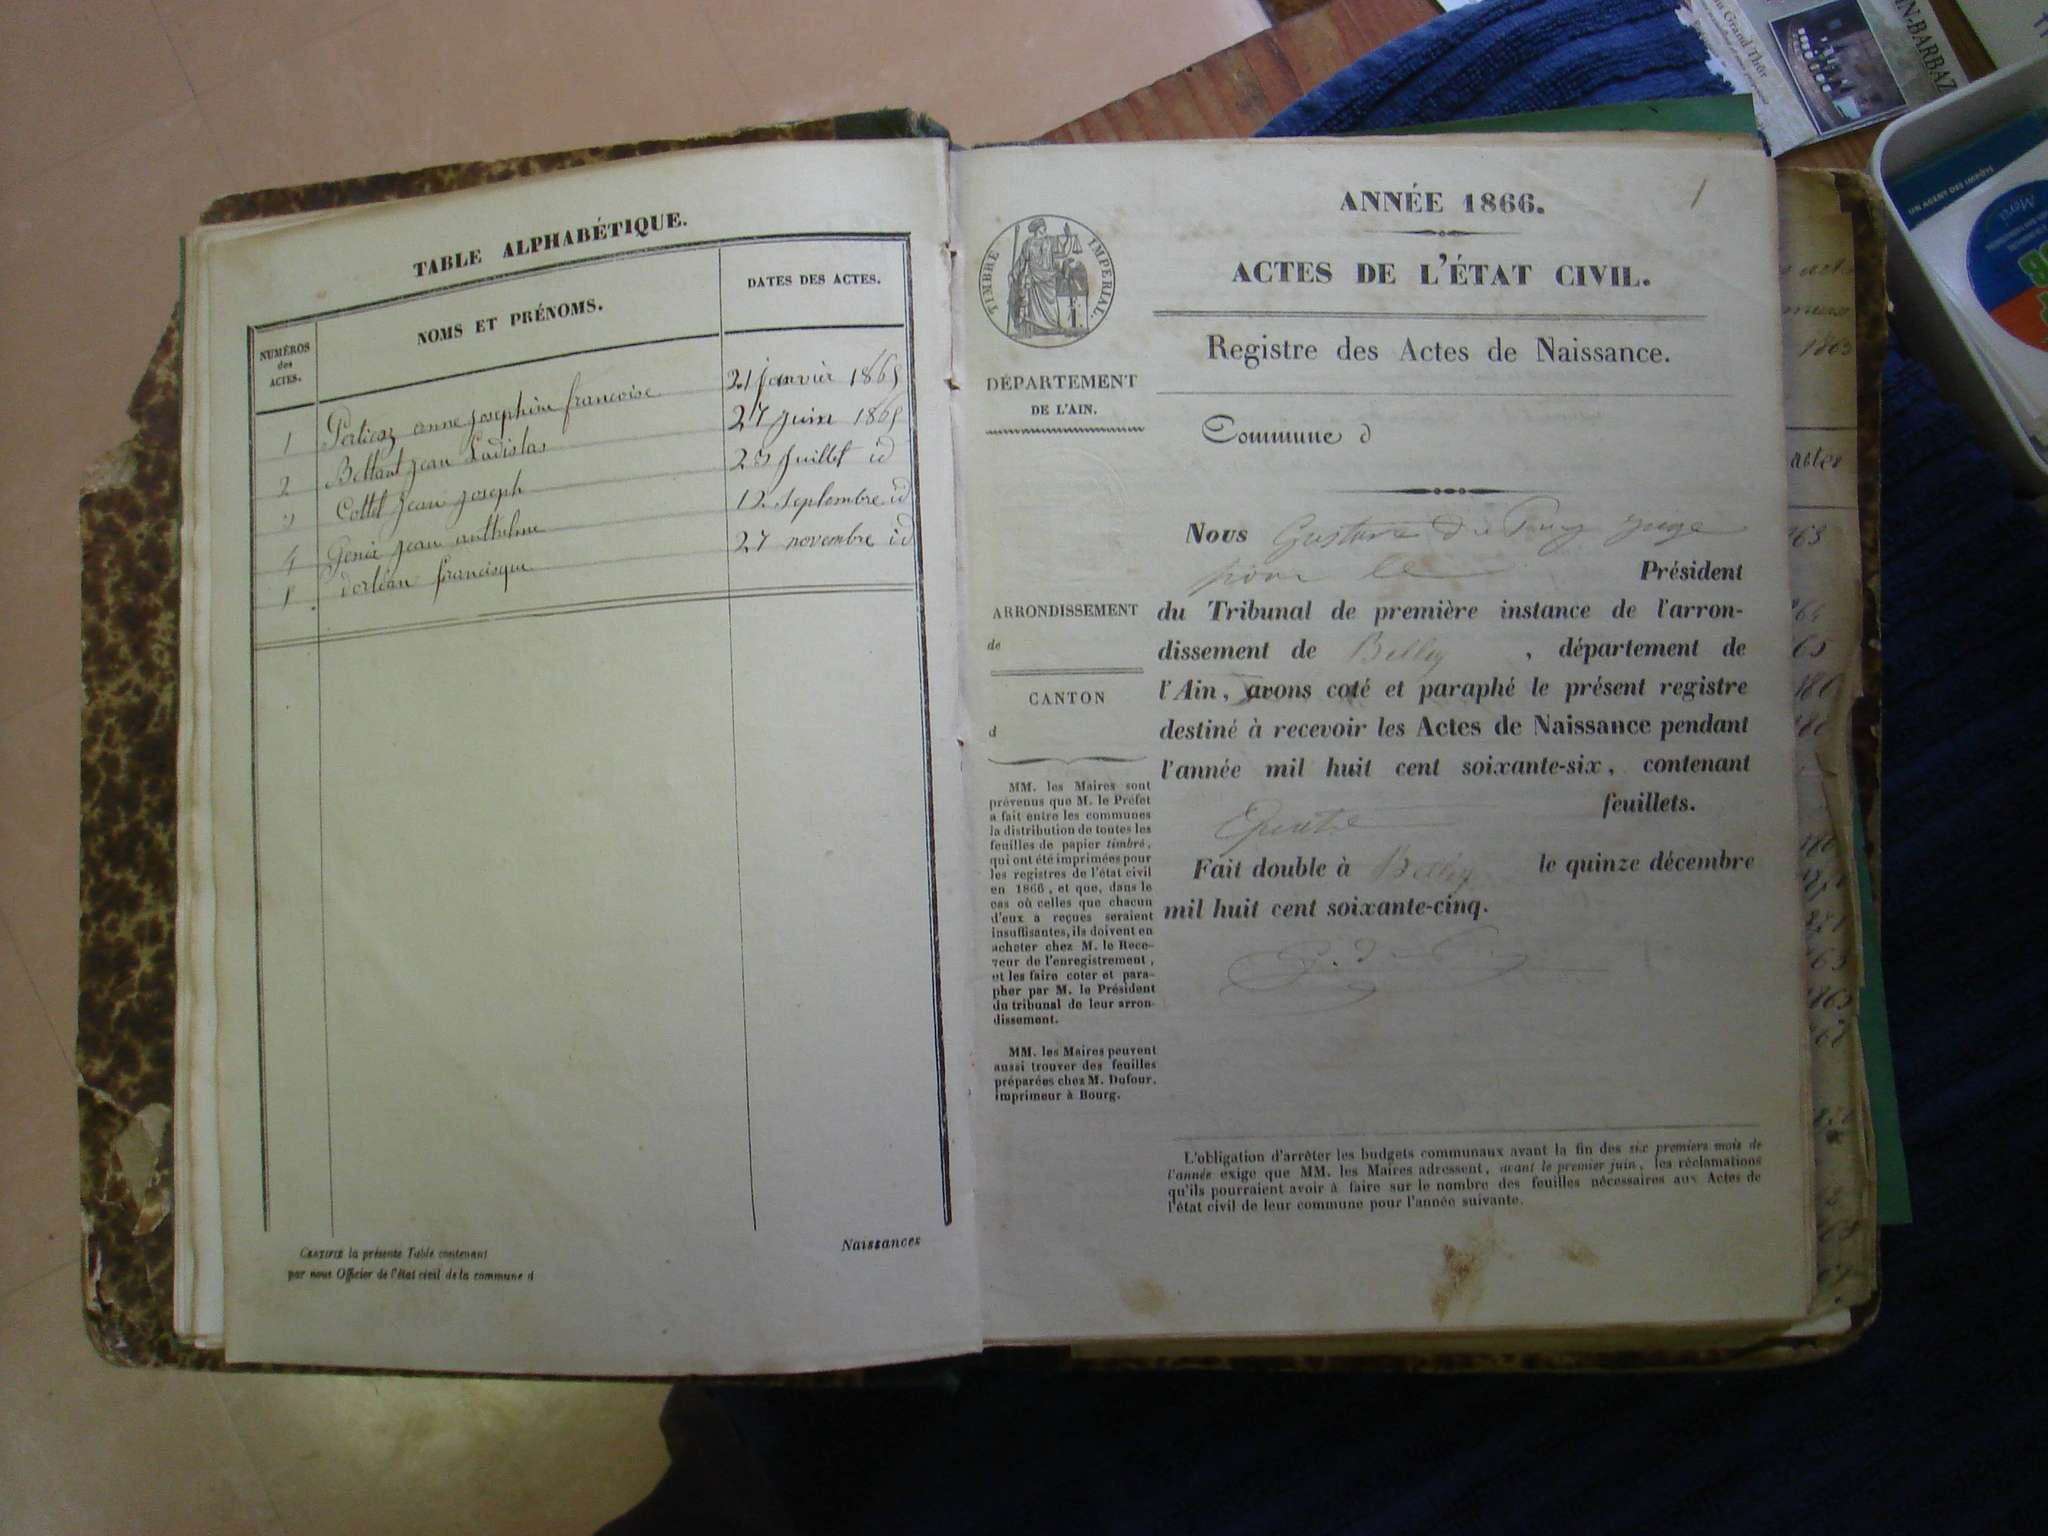 TABLE ALPHABÉTIQUE.
NUMÉROS
des
ACTES.
NOMS ET PRÉNOMS.
DATES DES ACTES.
1 anne josephine francoise 21 janvier 1865
2 Bettant jean Ladislas 27 juin 1865
3 Cottet jean joseph 25 juillet id
4 jean anthelme 12 septembre id
5 dorléan francisque 27 novembre id
CERTIFIÉ la présente Table contenant
Naissances
par nous Officier de l'état civil de la commune d
1
ANNÉE 1866.
TIMBRE IMPÉRIAL.
ACTES DE L'ÉTAT CIVIL.
Registre des Actes de Naissance.
DÉPARTEMENT
DE L'AIN.
Commune d
ARRONDISSEMENT
de
CANTON
d
MM. les Maires sont
prévenus que M. le Préfet
a fait entre les communes
la distribution de toutes les
feuilles de papier timbré,
qui ont été imprimées pour
les registres de l'état civil
en 1866, et que, dans le
cas où celles que chacun
d'eux a reçues seraient
insuffisantes, ils doivent en
acheter chez M. le Rece-
veur de l'enregistrement,
et les faire coter et para-
pher par M. le Président
du tribunal de leur arron-
dissement.
MM. les Maires peuvent
aussi trouver des feuilles
préparées chez M. Dufour,
imprimeur à Bourg.
Nous Gustave juge
pour le Président
du Tribunal de première instance de l'arron-
dissement de Belley, département de
l'Ain, avons coté et paraphé le présent registre
destiné à recevoir les Actes de Naissance pendant
l'année mil huit cent soixante-six, contenant
Quatre feuillets.
Fait double à Belley le quinze décembre
mil huit cent soixante-cinq.
L'obligation d'arrêter les budgets communaux avant la fin des six premiers mois de
l'année exige que MM. les Maires adressent, avant le premier juin, les réclamations
qu'ils pourraient avoir à faire sur le nombre des feuilles nécessaires aux Actes de
l'état civil de leur commune pour l'année suivante.
1863
actes